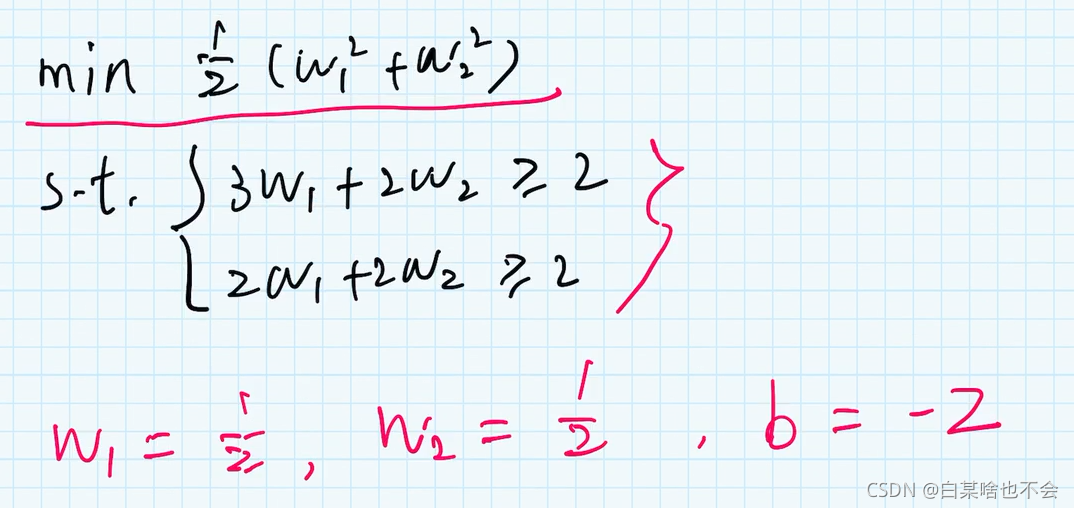 min 1/2 (w₁² + w₂²)
s.t. { 3w₁ + 2w₂ ≥ 2
2w₁ + 2w₂ ≥ 2 }
w₁ = 1/2, w₂ = 1/2, b = -2
CSDN @白某啥也不会